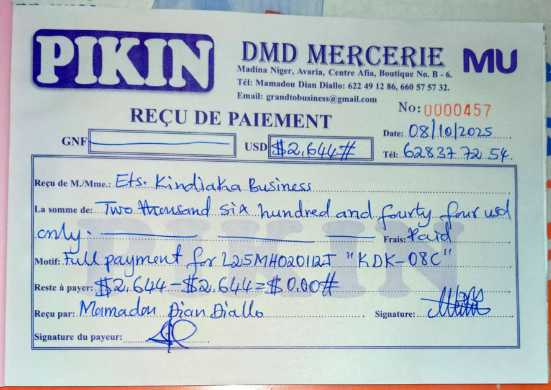 PIKIN
DMD MERCERIE MU
Madina Niger, Avaria, Centre Afia, Boutique No. B - 6.
Tél: Mamadou Dian Diallo: 622 49 12 86, 660 57 57 32.
Email: grandtobusiness@gmail.com
No: 0000457
REÇU DE PAIEMENT
Date: 08/10/2025
GNF USD $2,644#
Tél: 62837 72 54.
Reçu de M./Mme.: Ets. Kindiaka Business
La somme de: Two thousand six hundred and fourty four usd
only. Frais: Paid
Motif: Full payment for L25MH020112J "KDK-08C"
Reste à payer: $2,644-$2,644=$0.00#
Reçu par: Mamadou Dian Diallo Signature:
Signature du payeur:
PIKIN